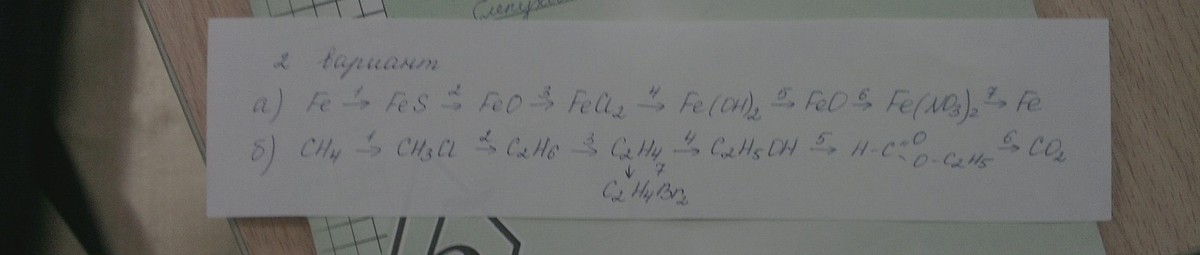 2 вариант
а) Fe 1→ FeS 2→ FeO 3→ FeCl2 4→ Fe(OH)2 5→ FeO 6→ Fe(NO3)2 7→ Fe
б) CH4 1→ CH3Cl 2→ C2H6 3→ C2H4 4→ C2H5OH 5→ H-C=O O-C2H5 6→ CO2
↓ 7
C2H4Br2